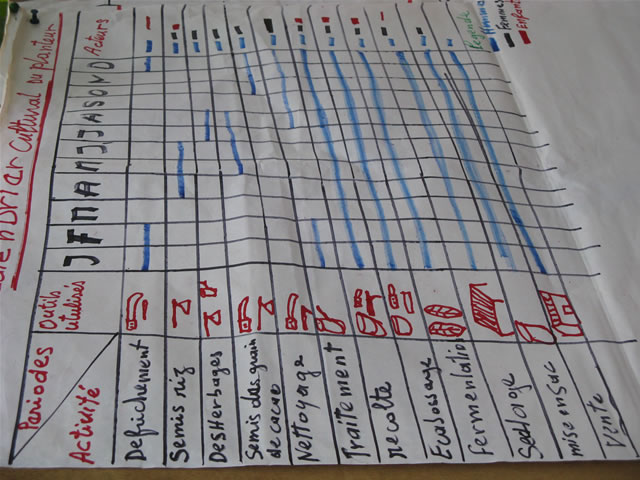 Cultural DU planteur
Périodes
Activité
Outils
utilisés
J F M A M J J A S O N D
Acteurs
Légende
Hommes
Femmes
Enfant
Defrichement
Semis riz
DesHerbages
Semis des grain
de cacao
Nettoyage
Traitement
recolte
Ecabossage
Fermentation
Sechage
mise en sac
Vente